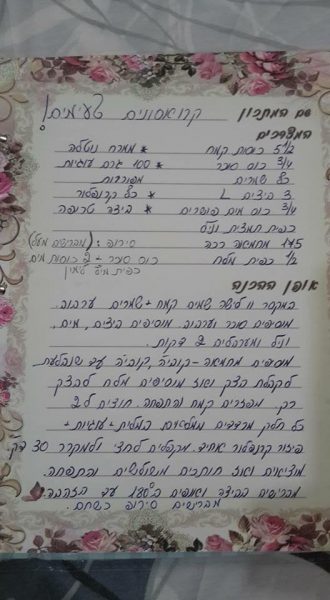 שם המתכון קרואסונים טעימים!
המצרכים
5 1/2 כוסות קמח * ממרח נוטלה
3/4 כוס סוכר * 100 גרם עוגיות
כף שמרים מפוררות
3 ביצים L * כף קורנפלור
3/4 כוס מים פושרים * ביצה טרופה
כפית תמצית וניל
175 מחמאה רכה סירופ: (מברישים מעל)
1/2 כפית מלח כוס סוכר + 2 כוסות מים
כפית מיץ לימון
אופן ההכנה
במיקסר וו לישה שמים קמח + שמרים ערבוב.
מוסיפים סוכר וערבוב. מוסיפים ביצים, מים,
וניל ומערבלים 2 דקות.
מוסיפים מחמאה - קוביה, קוביה עד שנבלעת.
לקבלת הבצק ואז מוסיפים מלח לבצק
רך. מפזרים קמח והתפחה. חוצים ל2
כל חלק מרדדים ממלאים בנוטלה + עוגיות +
פיזור קורנפלור אחיד. מקפלים לחצי ולמקרר 30 דק'.
מוציאים ואז חותכים משולשים והתפחה.
מברישים בביצה ואופים ב180° עד הזהבה.
מברישים סירופ כשחם.